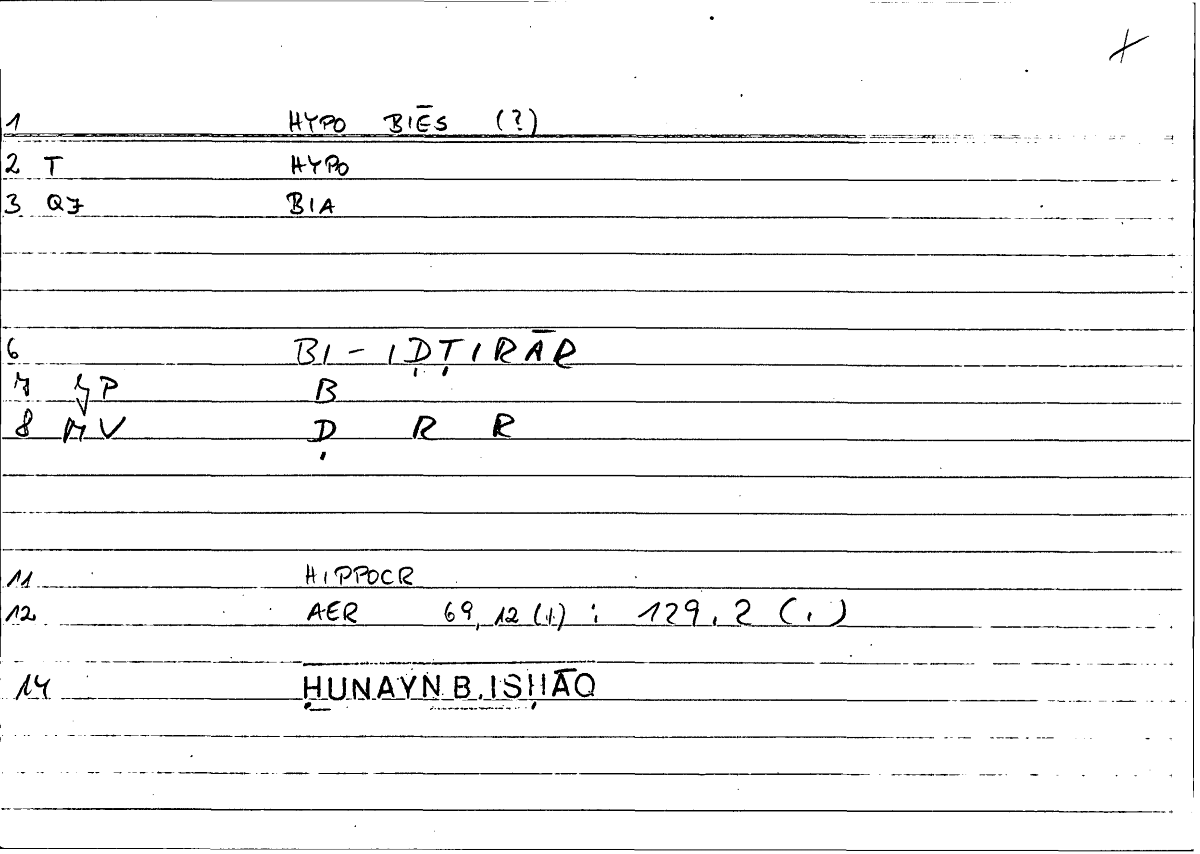 1 HYPO BIĒS (?)
2 T HYPO
3 QJ BIA
6 BI-IḌṬIRĀR
7 GP B
8 MV Ḍ R R
11 HIPPOCR
12 AER 69,12 (1.) : 129,2 (.)
14 ḤUNAYN B. ISḤĀQ